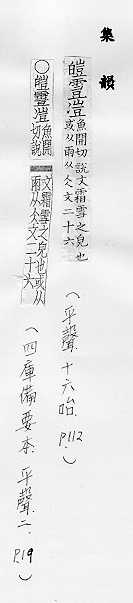 集韻
皚䨟溰魚開切說文霜雪之皃也
或从雨从仌文二十六
（平聲十六咍 p.112）
○皚䨟溰魚開切說
文霜雪之皃也或从
雨从仌文二十六
（四庫備要本．平聲．二．p.19）